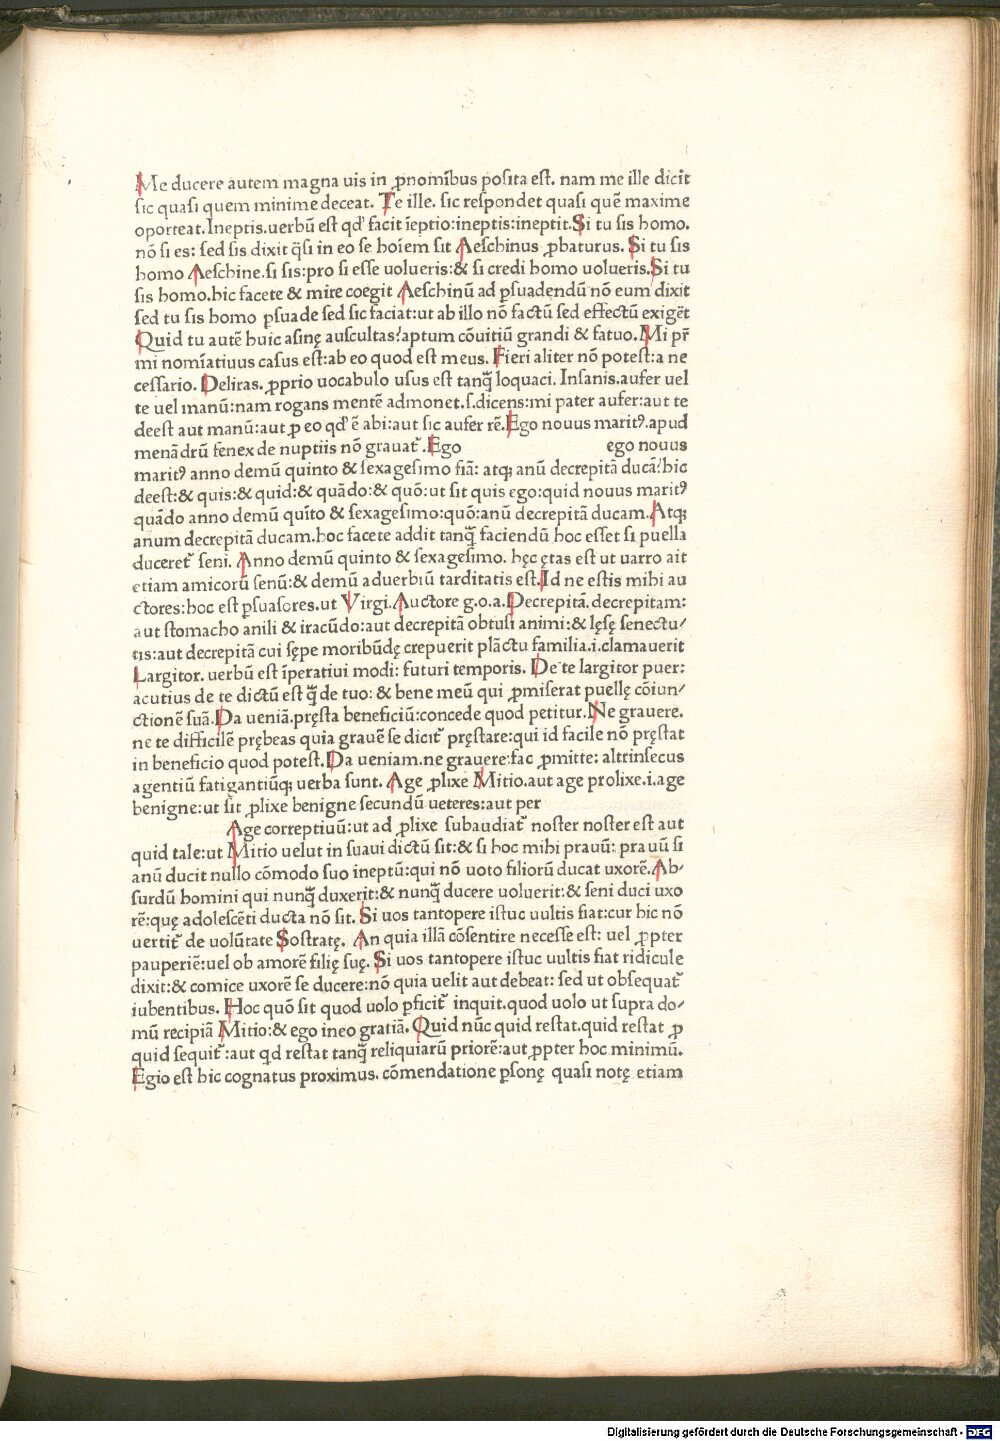 Me ducere autem magna uis in ꝓnomĩbus posita est. nam me ille dicit
sic quasi quem minime deceat. Te ille. sic respondet quasi quẽ maxime
oporteat. Ineptis. uerbũ est qđ facit ĩeptio: ineptis: ineptit. Si tu sis homo.
nõ si es: sed sis dixit q̃si in eo se hoĩem sit Aeschinus ꝓbaturus. Si tu sis
homo Aeschine. si sis: pro si esse uolueris: & si credi homo uolueris. Si tu
sis homo. hic facete & mire coegit Aeschinũ ad ꝑsuadendũ nõ eum dixit
sed tu sis homo ꝑsuade sed sic faciat: ut ab illo nõ factũ sed effectũ exigẽt
Quid tu autẽ huic asinę auscultas? aptum cõuitiũ grandi & fatuo. Mi pr̃
mi nomĩatiuus casus est: ab eo quod est meus. Fieri aliter nõ potest: a ne
cessario. Deliras. ꝓprio uocabulo usus est tanq̃ loquaci. Insanis. aufer uel
te uel manũ: nam rogans mentẽ admonet. s. dicens: mi pater aufer: aut te
deest aut manũ: aut ꝓ eo qđ ẽ abi: aut sic aufer rẽ. Ego nouus maritꝰ. apud
menãdrũ senex de nuptiis nõ grauat᷑. Ego ego nouus
maritꝰ anno demũ quinto & sexagesimo fiã: atqꝫ anũ decrepitã ducã? hic
deest: & quis: & quid: & quãdo: & quõ: ut sit quis ego: quid nouus maritꝰ
quãdo anno demũ quĩto & sexagesimo: quõ: anũ decrepitã ducam. Atqꝫ
anum decrepitã ducam. hoc facete addit tanq̃ faciendũ hoc esset si puella
duceret᷑ seni. Anno demũ quinto & sexagesimo. hęc ętas est ut uarro ait
etiam amicorũ senũ: & demũ aduerbiũ tarditatis est. Id ne estis mihi au
ctores: hoc est ꝑsuasores. ut Virgi. Auctore g. o. a. Decrepitã. decrepitam:
aut stomacho anili & iracũdo: aut decrepitã obtusi animi: & lęsę senectu/
tis: aut decrepitã cui sępe moribũdę crepuerit plãctu familia. i. clamauerit
Largitor. uerbũ est ĩperatiui modi: futuri temporis. De te largitor puer:
acutius de te dictũ est q̃ de tuo: & bene meũ qui ꝓmiserat puellę cõiun/
ctionẽ suã. Da ueniã. pręsta beneficiũ: concede quod petitur. Ne grauere.
ne te difficilẽ prębeas quia grauẽ se dicit᷑ pręstare: qui id facile nõ pręstat
in beneficio quod potest. Da ueniam. ne grauere: fac ꝓmitte: altrinsecus
agentiũ fatigantiũqꝫ uerba sunt. Age ꝓlixe Mitio. aut age prolixe. i. age
benigne: ut sit ꝓlixe benigne secundũ ueteres: aut per
Age correptiuũ: ut ad ꝓlixe subaudiat᷑ noster noster est aut
quid tale: ut Mitio uelut in suaui dictũ sit: & si hoc mihi prauũ: prauũ si
anũ ducit nullo cõmodo suo ineptũ: qui nõ uoto filiorũ ducat uxorẽ. Ab/
surdũ homini qui nunq̃ duxerit: & nunq̃ ducere uoluerit: & seni duci uxo
rẽ: quę adolescẽti ducta nõ sit. Si uos tantopere istuc uultis fiat: cur hic nõ
uertit᷑ de uolũtate Sostratę. An quia illã cõsentire necesse est: uel ꝓpter
pauperiẽ: uel ob amorẽ filię suę. Si uos tantopere istuc uultis fiat ridicule
dixit: & comice uxorẽ se ducere: nõ quia uelit aut debeat: sed ut obsequat᷑
iubentibus. Hoc quõ sit quod uolo ꝑficit᷑ inquit. quod uolo ut supra do/
mũ recipiã Mitio: & ego ineo gratiã. Quid nũc quid restat. quid restat ꝓ
quid sequit᷑: aut qd restat tanq̃ reliquiarũ priorẽ: aut ꝓpter hoc minimũ.
Egio est hic cognatus proximus. cõmendatione ꝑsonę quasi notę etiam
Digitalisierung gefördert durch die Deutsche Forschungsgemeinschaft - DFG